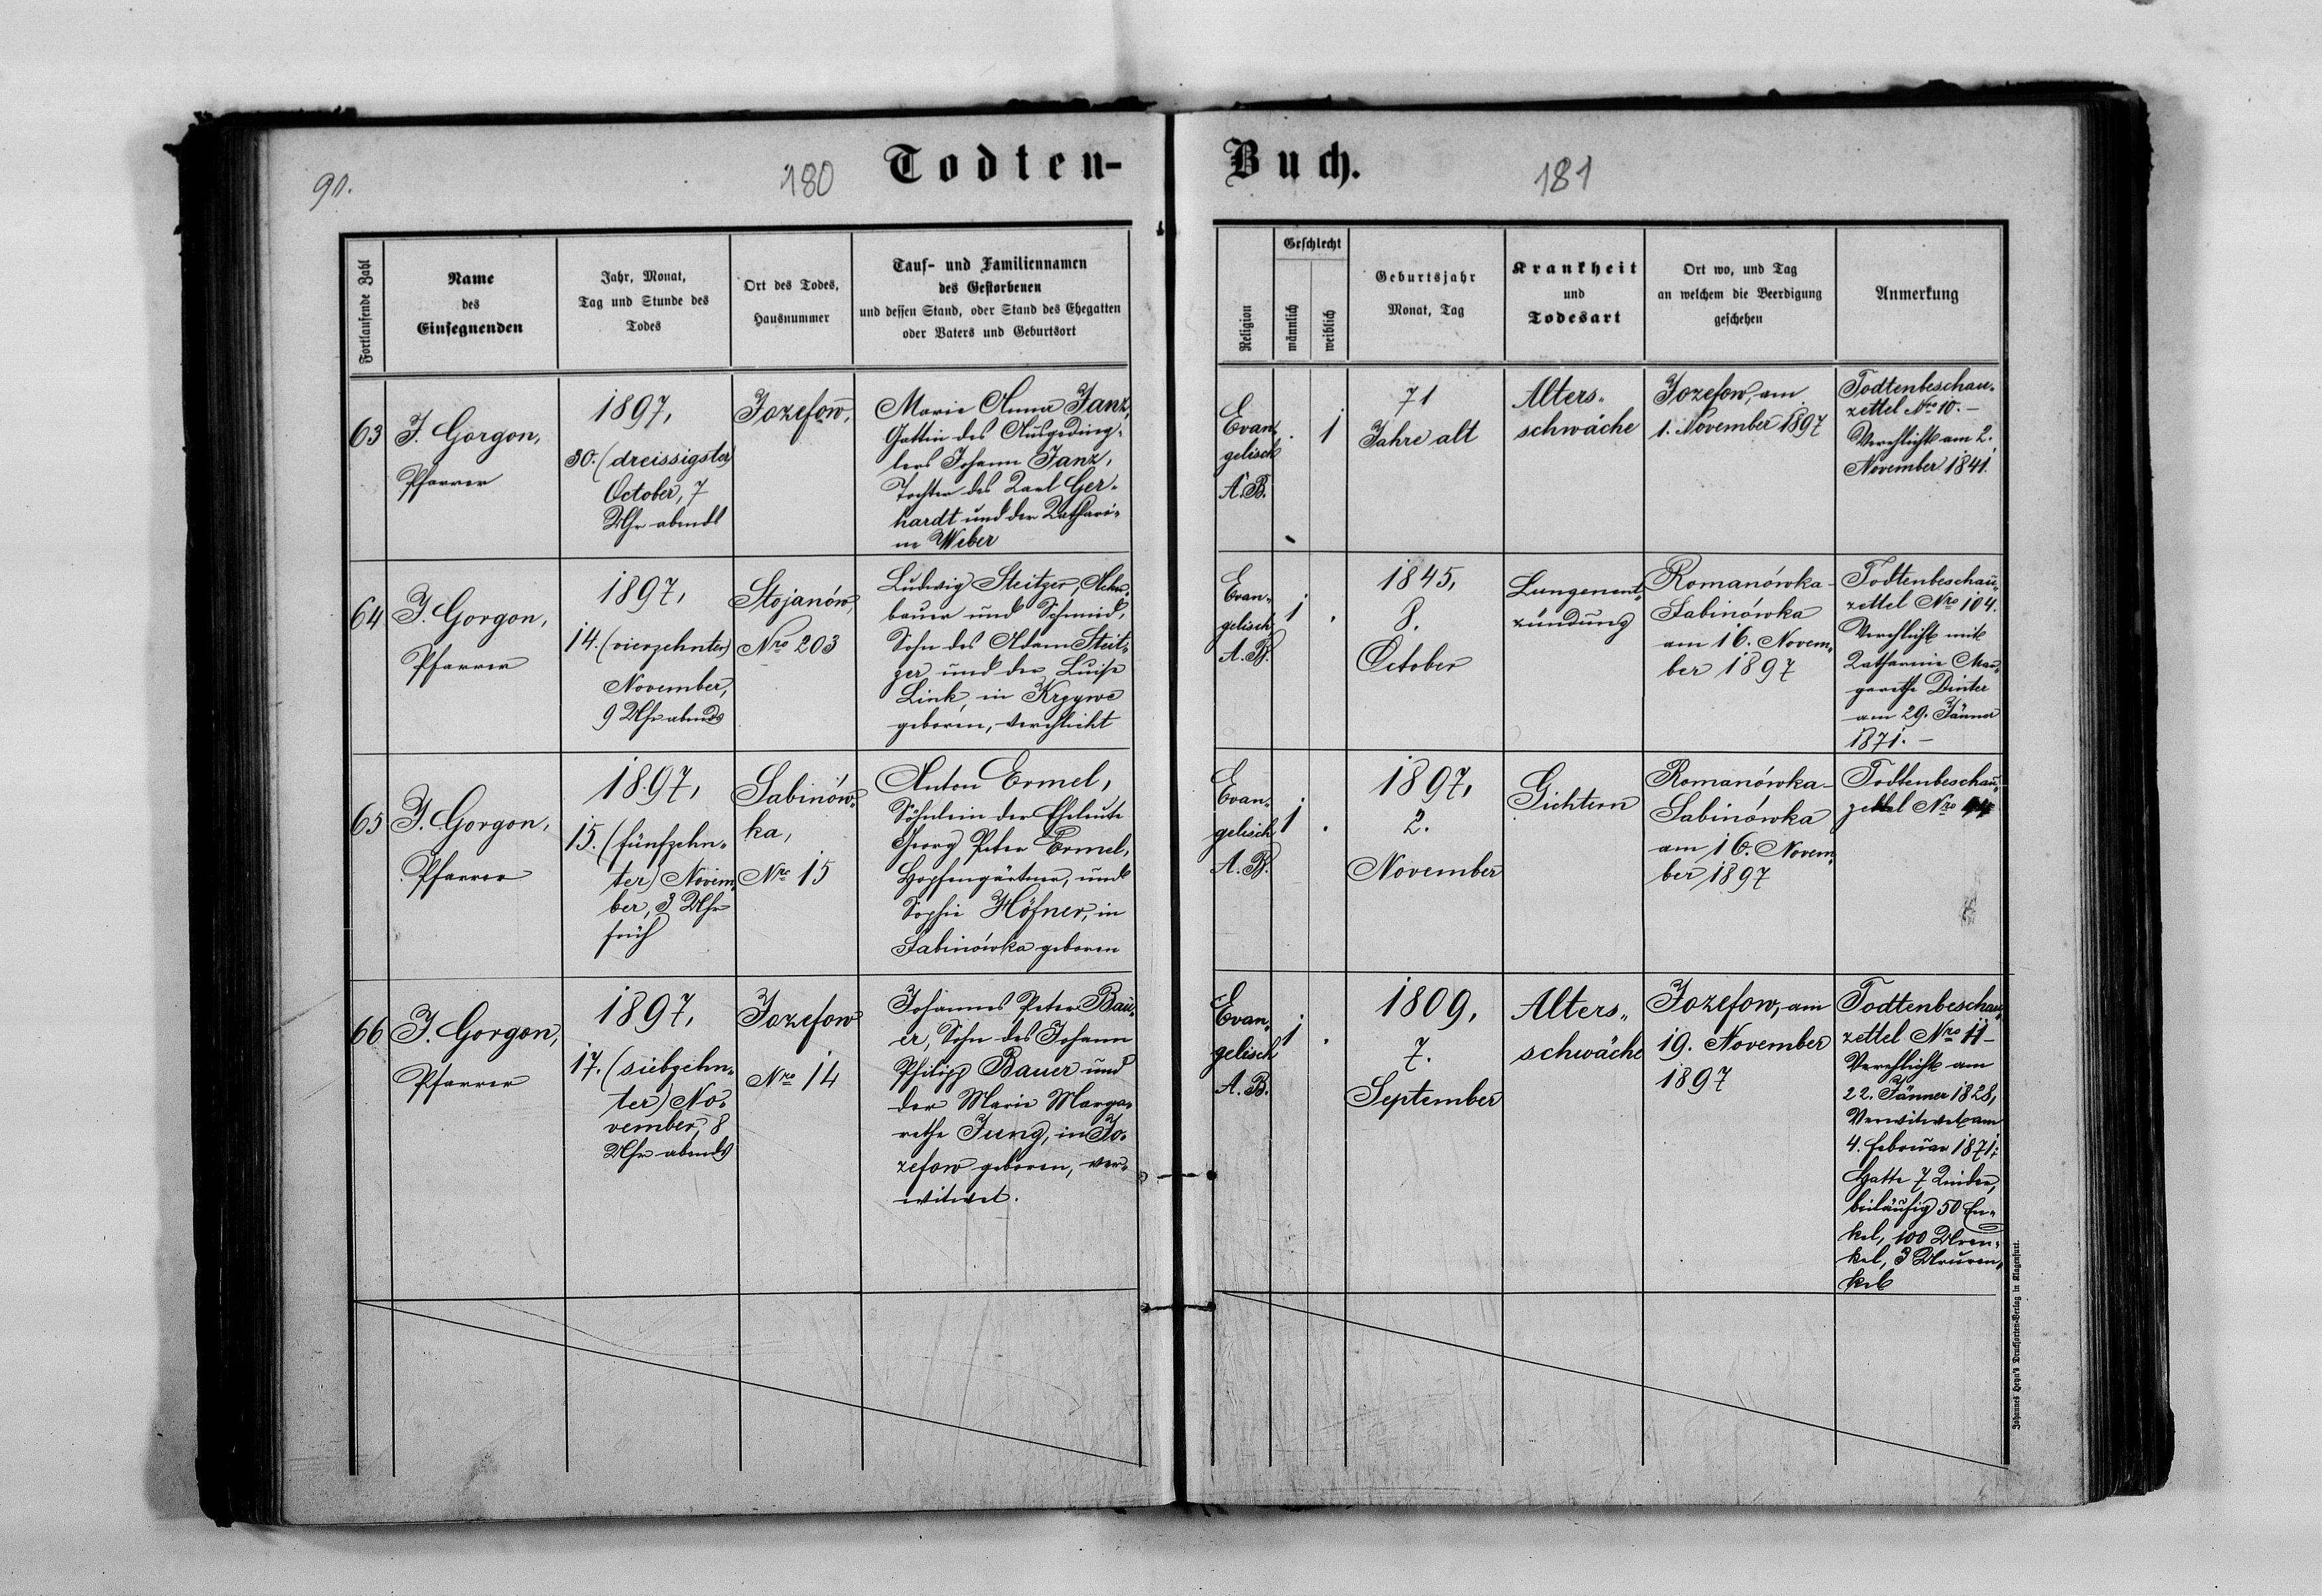 91.
180
Todten-
Buch.
181
Fortlaufende Zahl
Name
des
Einsegnenden
Jahr, Monat,
Tag und Stunde des
Todes
Ort des Todes,
Hausnummer
Tauf- und Familiennamen
des Gestorbenen
und dessen Stand, oder Stand des Ehegatten
oder Vaters und Geburtsort
Religion
Geschlecht
männlich
weiblich
Geburtsjahr
Monat, Tag
Krankheit
und
Todesart
Ort wo, und Tag
an welchem die Beerdigung
geschehen
Anmerkung
63
J. Gorgon,
Pfarrer
1897,
30. (dreissigster)
October, 7
Uhr abends
Jozefow,
Marie Anna Janz,
Gattin des Ausgeding-
lers Johann Janz,
Tochter des Karl Ger-
hardt und der Kathari-
na Weber
Evan-
gelisch
A.B.
. 1
71
Jahre alt
Alters-
schwäche
Jozefow, am
1. November 1897
Todtenbeschau-
zettel Nro 10. -
Verehlicht am 2.
November 1841.
64
J. Gorgon,
Pfarrer
1897,
14. (vierzehnter)
November,
9 Uhr abends
Stojanów,
Nro 203
Ludwig Steitzer, Acker-
bauer und Schmid,
Sohn des Adam Steit-
zer und der Luise
Link, in Krzywe
geboren, verehlicht
Evan-
gelisch
A.B.
1 .
1845,
8.
October
Lungenent-
zündung
Romanówka-
Sabinówka
am 16. Novem-
ber 1897
Todtenbeschau-
zettel Nro 104.
Verehlicht mit
Katharine Mar-
garethe Dinter
am 29. Jänner
1871. -
65
J. Gorgon,
Pfarrer
1897,
15. (fünfzehn-
ter) Novem-
ber, 3 Uhr
früh
Sabinów-
ka,
Nro 15
Anton Ermel,
Söhnlein der Eheleute
Georg Peter Ermel,
Hopfengärtner, und
Sophie Höfner, in
Sabinówka geboren
Evan-
gelisch
A.B.
1 .
1897,
2.
November
Gichtern
Romanówka-
Sabinówka
am 16. Novem-
ber 1897
Todtenbeschau-
zettel Nro
66
J. Gorgon,
Pfarrer
1897,
17. (siebzehn-
ter) No-
vember, 8
Uhr abends
Jozefow
Nro 14
Johannes Peter Bau-
er, Sohn des Johann
Philipp Bauer und
der Marie Marga-
rethe Jung, in Jo-
zefow geboren, ver-
witwet.
Evan-
gelisch
A.B.
1 .
1809,
7.
September
Alters-
schwäche
Jozefow, am
19. November
1897
Todtenbeschau-
zettel Nro 11 -
Verehlicht am
22. Jänner 1828,
Verwitwet am
4. Februar 1871.
Hatte 7 Kinder,
beiläufig 50 En-
kel, 100 Uren-
kel, 3 Ururen-
kel
Johannes Heyn's Drucksorten-Verlag in Klagenfurt.